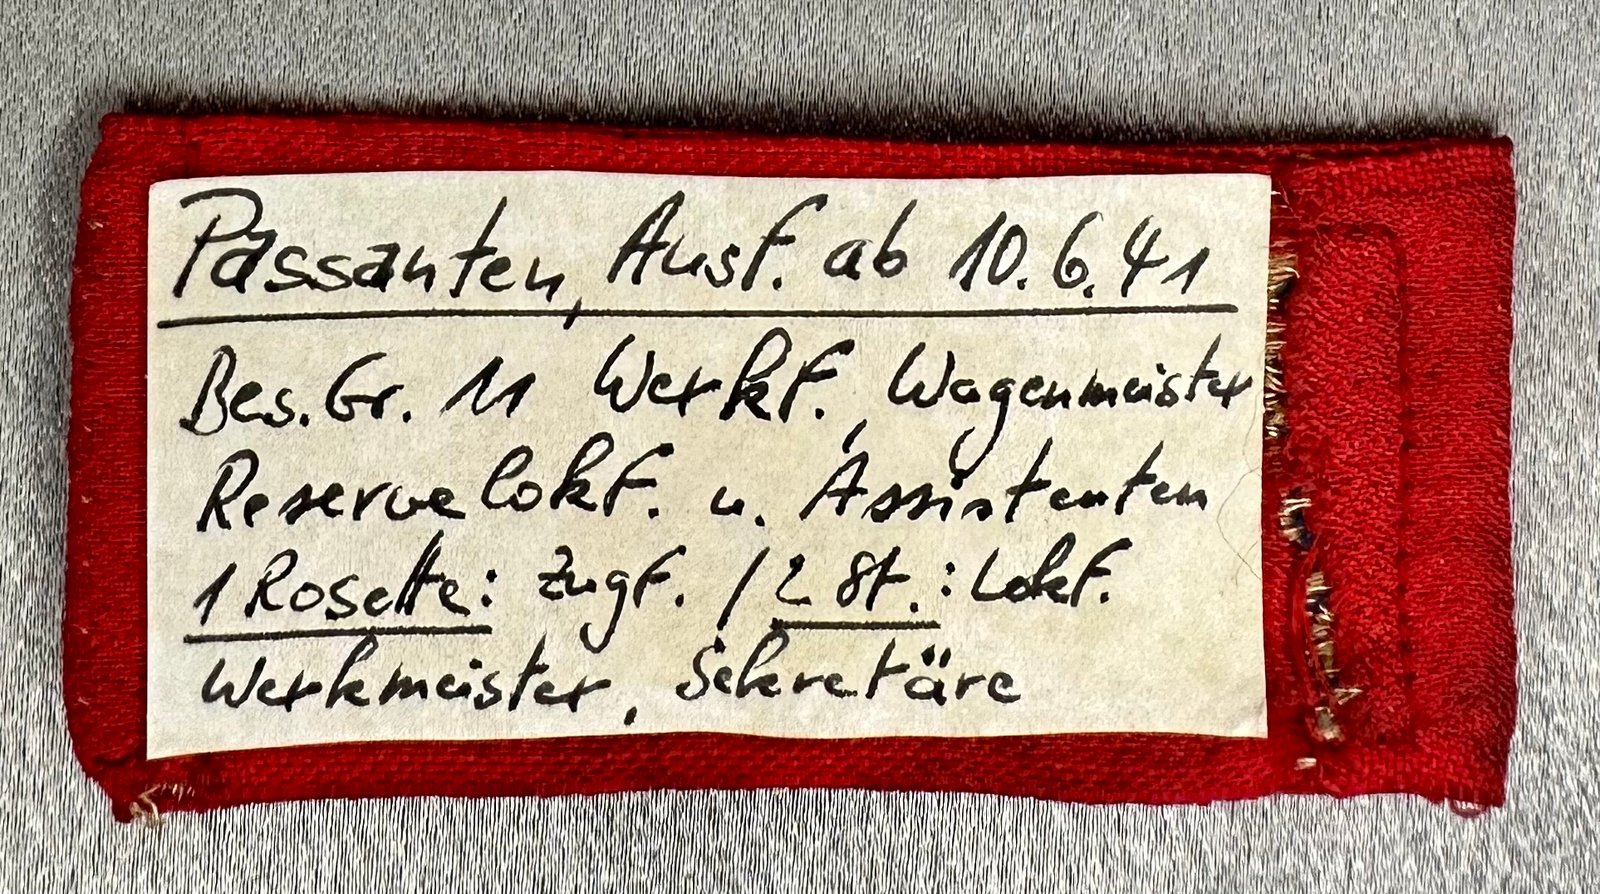 Passanten, Ausf. ab 10.6.41
Bes.Gr. 11 Werkf., Wagenmeister
Reservelokf. u. Assistenten
1 Rosette: Zugf. / 2 St.: Lokf.
Werkmeister, Sekretäre